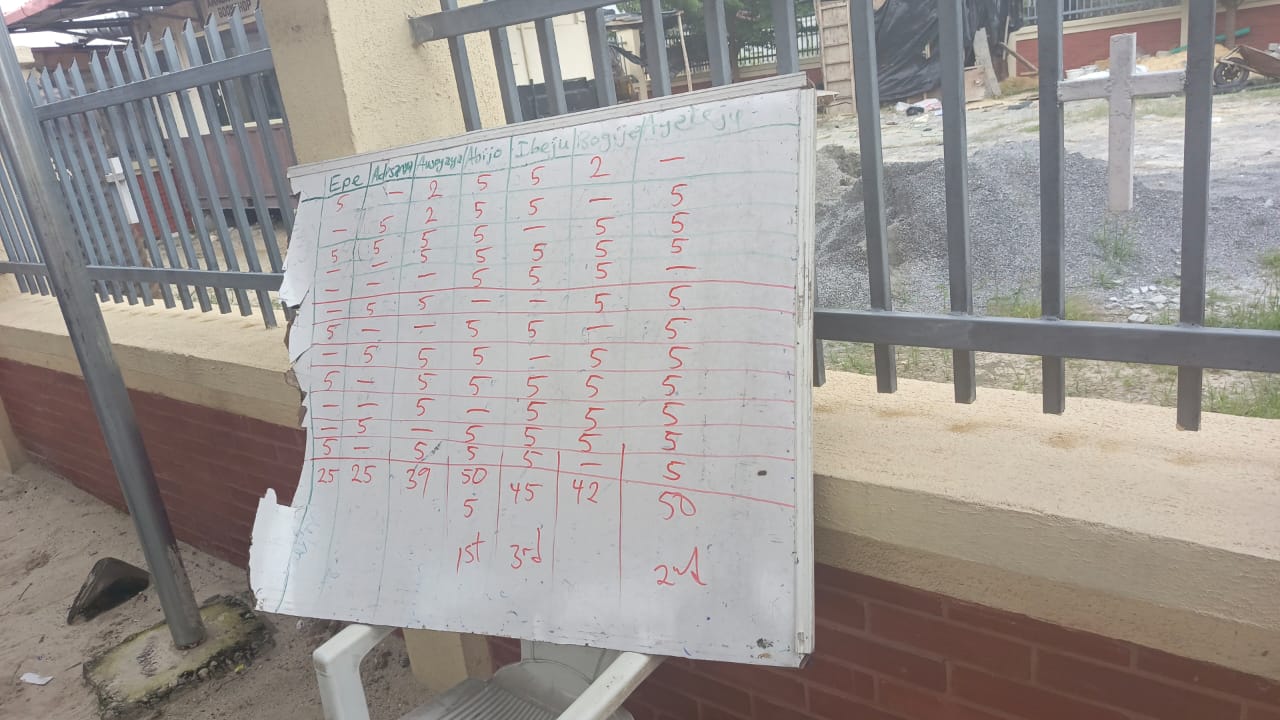 Epe Awoyaya Abijo Ibeju Bogije Ayeteju
5 - 2 5 5 2 -
- 5 2 5 5 - 5
5 5 5 5 - 5 5
5 5 5 5 5
- - - 5 5 5 -
- 5 5 - - 5 5
5 - - 5 5 - 5
- 5 5 5 - 5 5
5 - 5 5 5 5 5
- - 5 - 5 5 5
- 5 - 5 5 5 5
5 - 5 5 5 - 5
25 25 39 50 45 42 50
5
1st 3rd 2nd